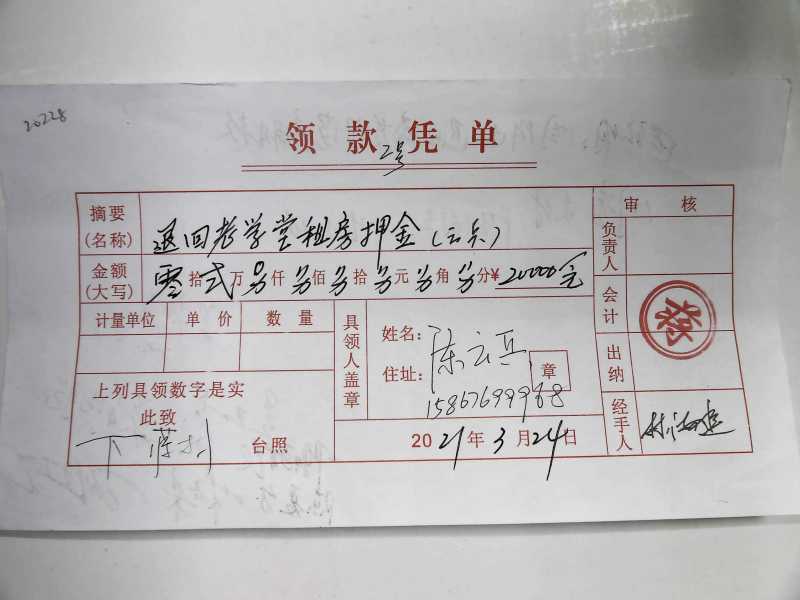 20228
领款凭单
2号
摘要(名称) 退回老学堂租房押金(云兵) 审核
金额(大写) 零拾弍万另仟另佰另拾另元另角另分¥20000元 负责人
计量单位 单价 数量 具领人盖章 姓名:陈云兵 会计
住址: 章 出纳
上列具领数字是实 15867699968
此致 经手人
下 台照 2021年3月24日